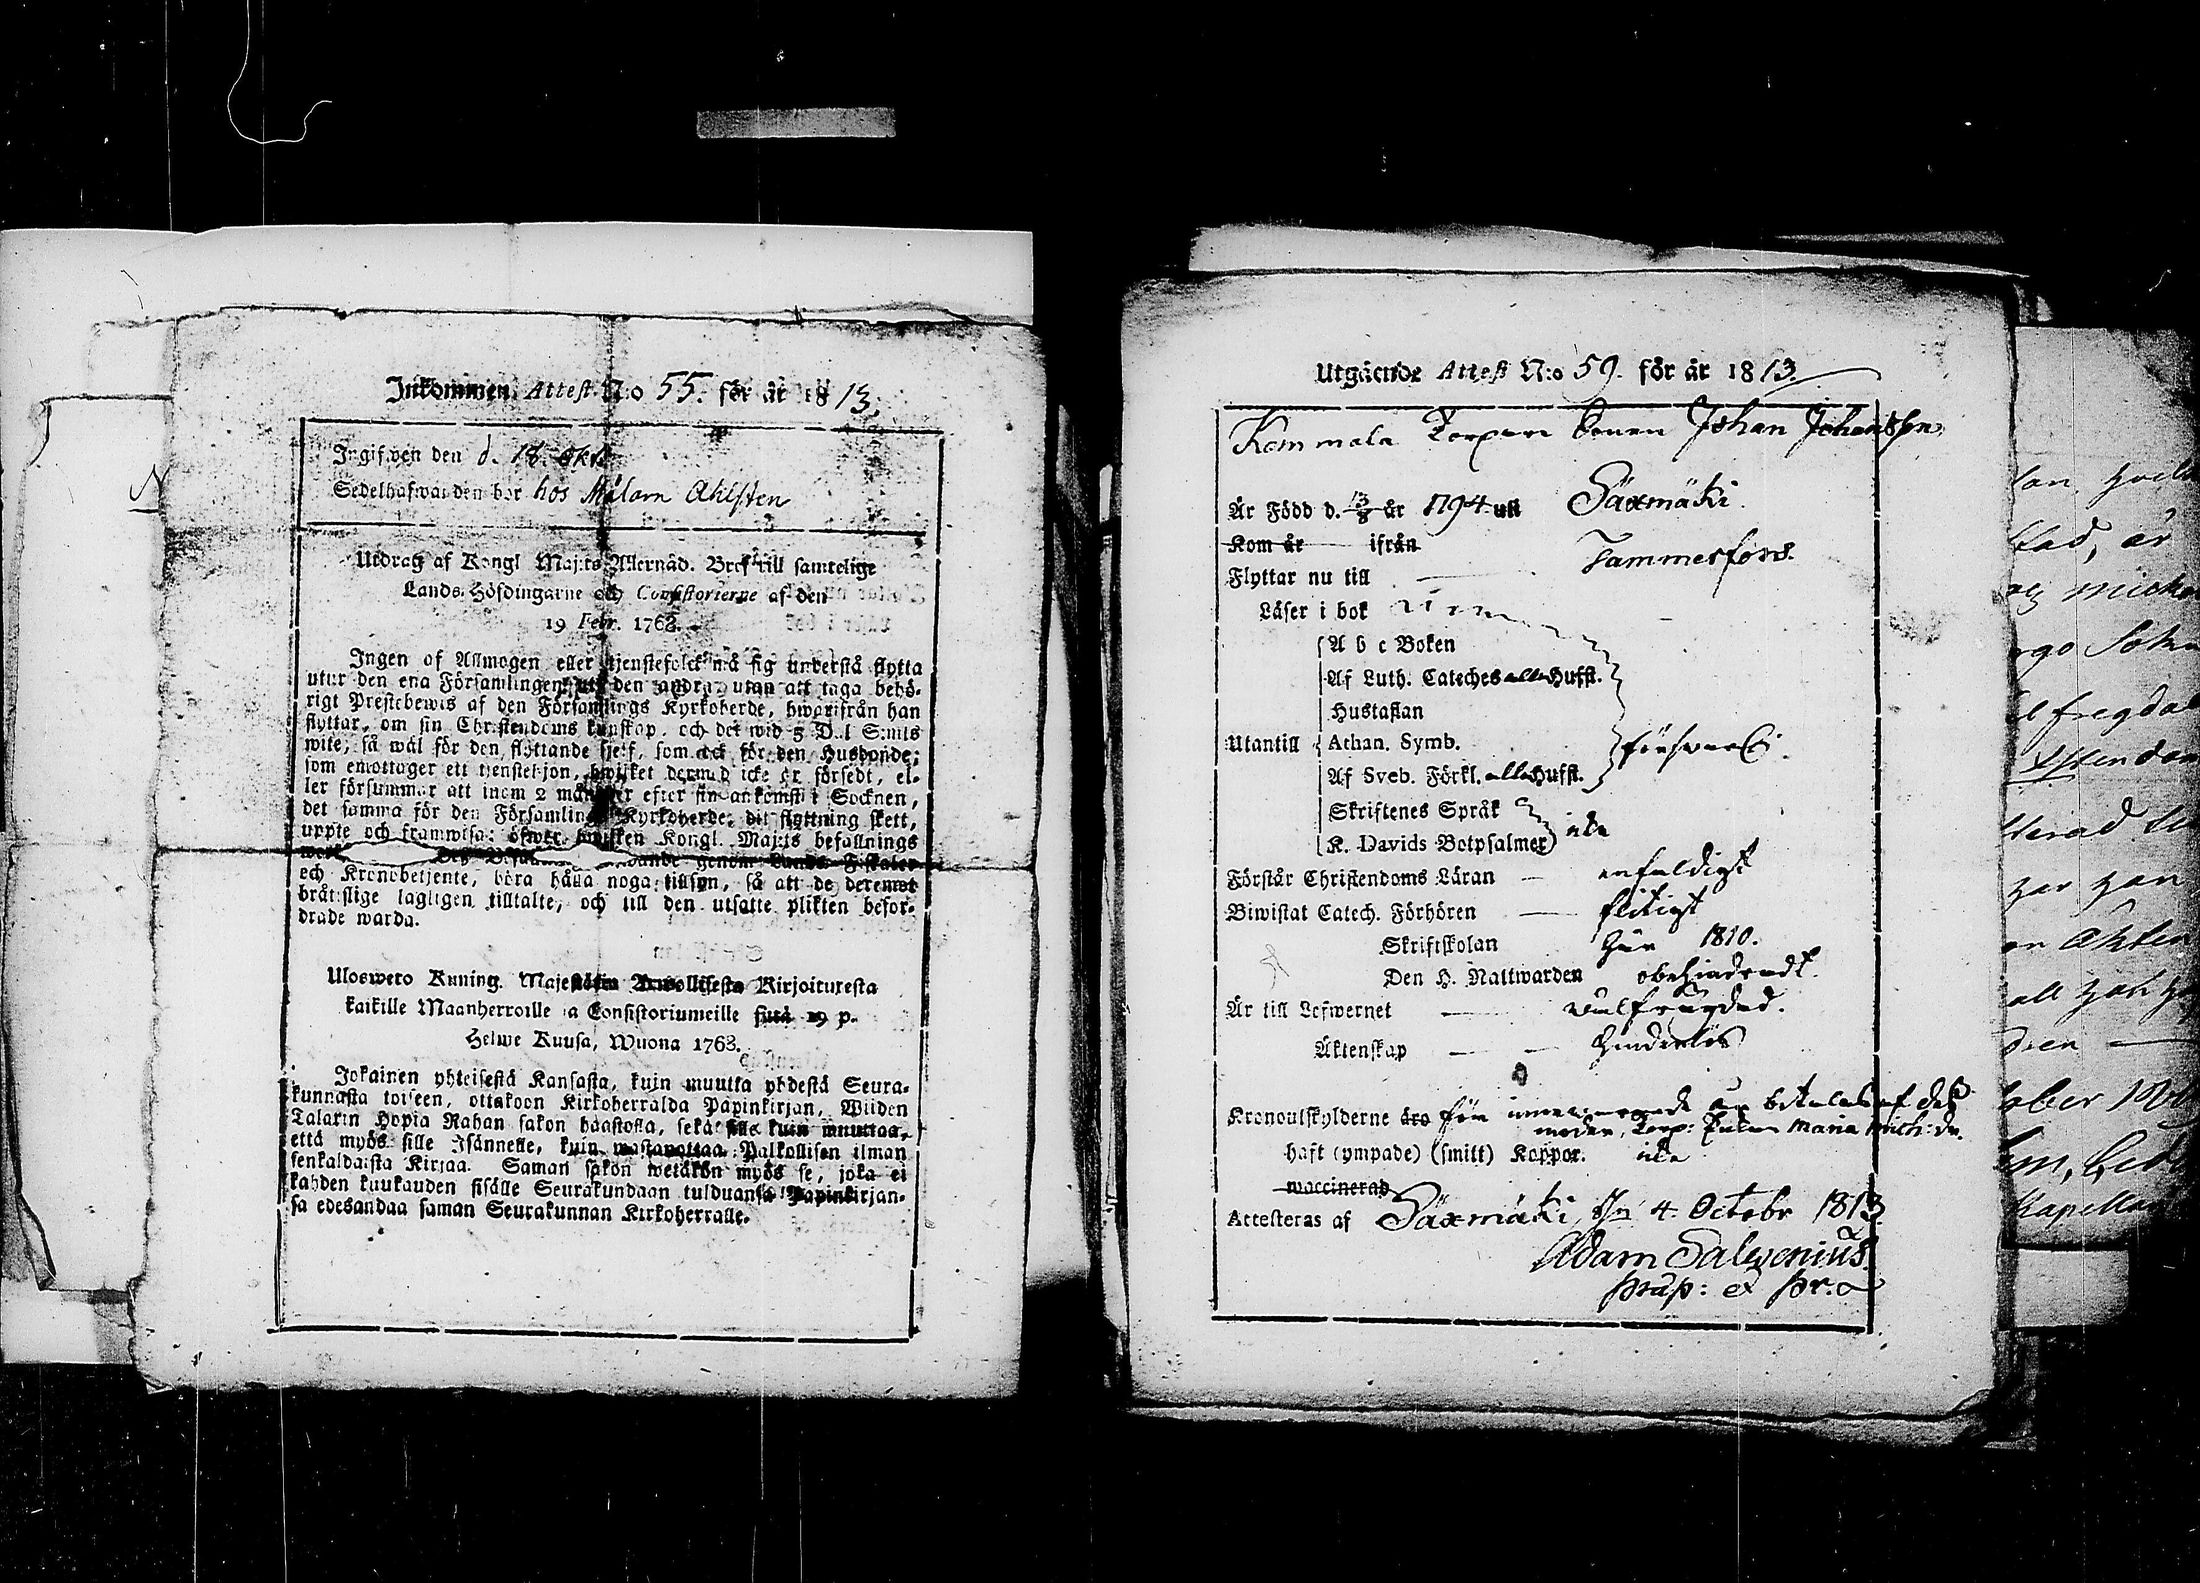 Inkommen Attest N:o 55. för år 1813.
Ingifwen den d. 18 Okt.
Sedelhafwanden bor hos Målarn Ahlsten
Utdrag af Kongl Maj:ts Allernåd. Bref till samtelige
Lands Höfdingarne och Consistorierne af den
19 Febr. 1763.
Ingen af Allmogen eller tjenstefolck må sig understå flytta
utur den ena Församlingen uti den andra, utan att taga behö-
rigt Prestebewis af den Församlings Kyrkoherde, hwarifrån han
flyttar, om sin Christendoms kunskap, och det wid 5 D.l S:mts
wite, så wäl för den flyttande sjelf, som ock för den Husbonde;
som emottager ett tjenstehjon, hwilket dermed icke är försedt, el-
ler försummar att inom 2 månader efter sin ankomst i Socknen,
det samma för den Församlings Kyrkoherde, dit flyttning skett,
uppte och framwisa: öfwer hwilken Kongl. Maj:ts befallnings
genom Lands Fiskaler
och Kronobetjente, böra hålla noga tillsyn, så att de deremot
bråttslige lagligen tilltalte, och till den utsatte plikten befor-
drade warda.
Ulosweto Kuning. Majestätin Armollisesta Kirjoituxesta
kaikille Maanherroille ja Consistoriumeille siitä 19 p.
Helme Kuusa, Wuona 1763.
Jokainen yhteisestä Kansasta, kuin muutta yhdestä Seura-
kunnasta toiseen, ottakoon Kirkoherralda Papinkirjan, Wiiden
Talarin Hopia Rahan sakon haastolla, sekä sille kuin muuttaa,
että myös sille Isännelle, kuin wastanottaa Palkollisen ilman
senkaldaista Kirjaa. Saman sakon wetäkön myös se, joka ei
kahden kuukauden sisälle Seurakundaan tulduansa Papinkirjan-
sa edesandaa saman Seurakunnan Kirkoherralle.
Utgående Attest N:o 59. för år 1813.
Kemmola Torpare Sonen Johan Johansson,
Är Född d. 13/8 år 1794 uti Säxmäki.
Kom år ifrån
Flyttar nu till Tammerfors.
Läser i bok
A b c Boken
Af Luth. Cateches alla Hufst.
Hustaflan
Utantill Athan. Symb. förswarl:
Af Sveb. Förkl. alla Hufst.
Skriftenes Språk
K. Davids Botpsalmer icke
Förstår Christendoms Läran enfaldigt
Biwistat Catech. Förhören flitigt
Skriftskolan här 1810.
Den H. Nattwarden obehindradt.
Är till Lefwernet wälfrägdad.
Äktenskap hinderlös
Kronoutskylderne äro för innewarande år betalde af dess
moder, Torp: Enkan Maria Mich: dr.
haft (ympade) (smitt) Koppor. icke
waccinerad
Attesteras af Säxmäki, den 4. Octobr 1813.
Adam Salvenius.
præp: et p:r: